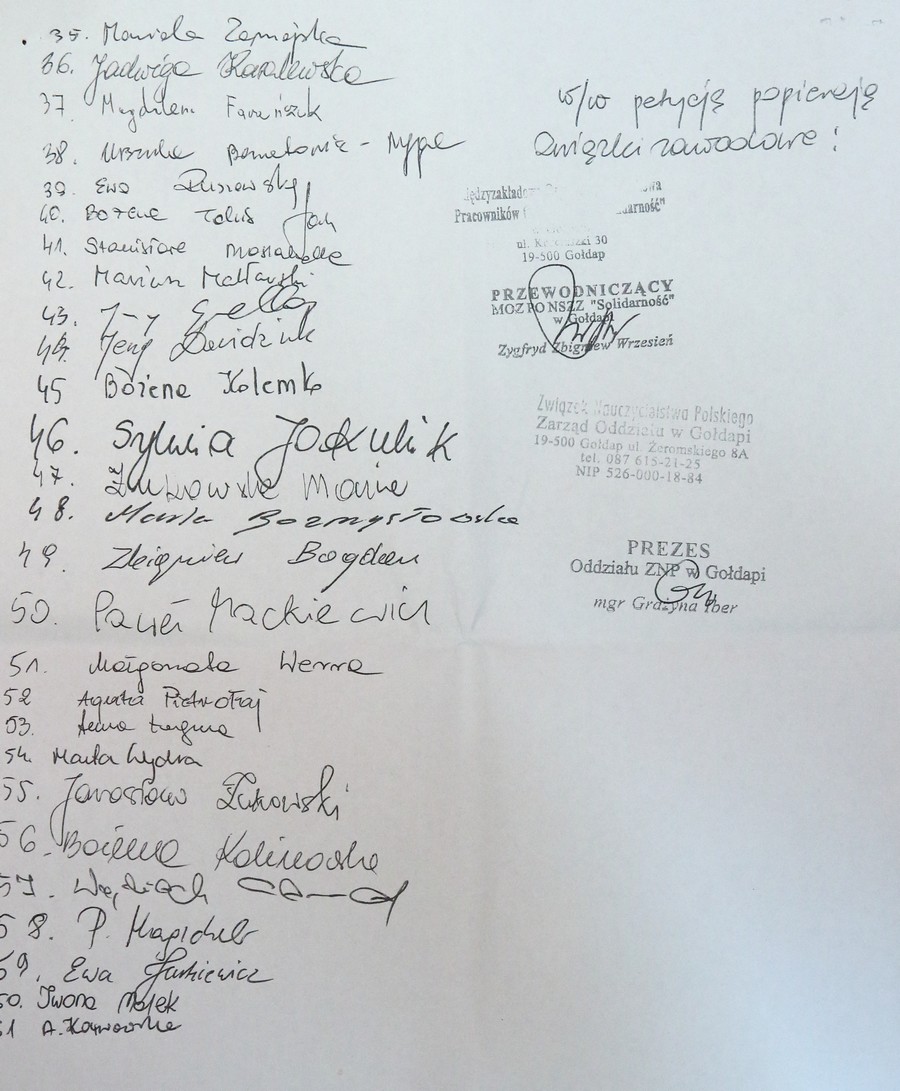 35. Mariola Zamojska
36. Jadwiga Karalewska
37. Magdalena
38. Urszula
39. Ewa
40. Bożena
41. Stanisława
42. Marian
43.
44. Jerzy Dawidziuk
45 Bożena Kolemko
46. Sylwia Jodkulik
47. Żukowska Maria
48. Maria Rozmysłowska
49. Zbigniew Bogdan
50. Paweł Mackiewicz
51. Małgorzata Werra
52 Agata Pietrołaj
53. Anna
54. Marta Wydra
55. Jarosław Żukowski
56. Bożena Kalinowska
57. Wojciech
58. P.
59. Ewa Jurkiewicz
60. Iwona Małek
61 A.
w/w petycję popierają
Związki zawodowe:
Pracowników
30
19-500 Gołdap
PRZEWODNICZĄCY
MOZ PO NSZZ "Solidarność"
w Gołdapi
Zygfryd Zbigniew Wrzesień
Związek Nauczycielstwa Polskiego
Zarząd Oddziału w Gołdapi
19-500 Gołdap ul. Żeromskiego 8A
tel. 087 615-21-25
NIP 526-000-18-84
PREZES
Oddziału ZNP w Gołdapi
mgr Grażyna Iber